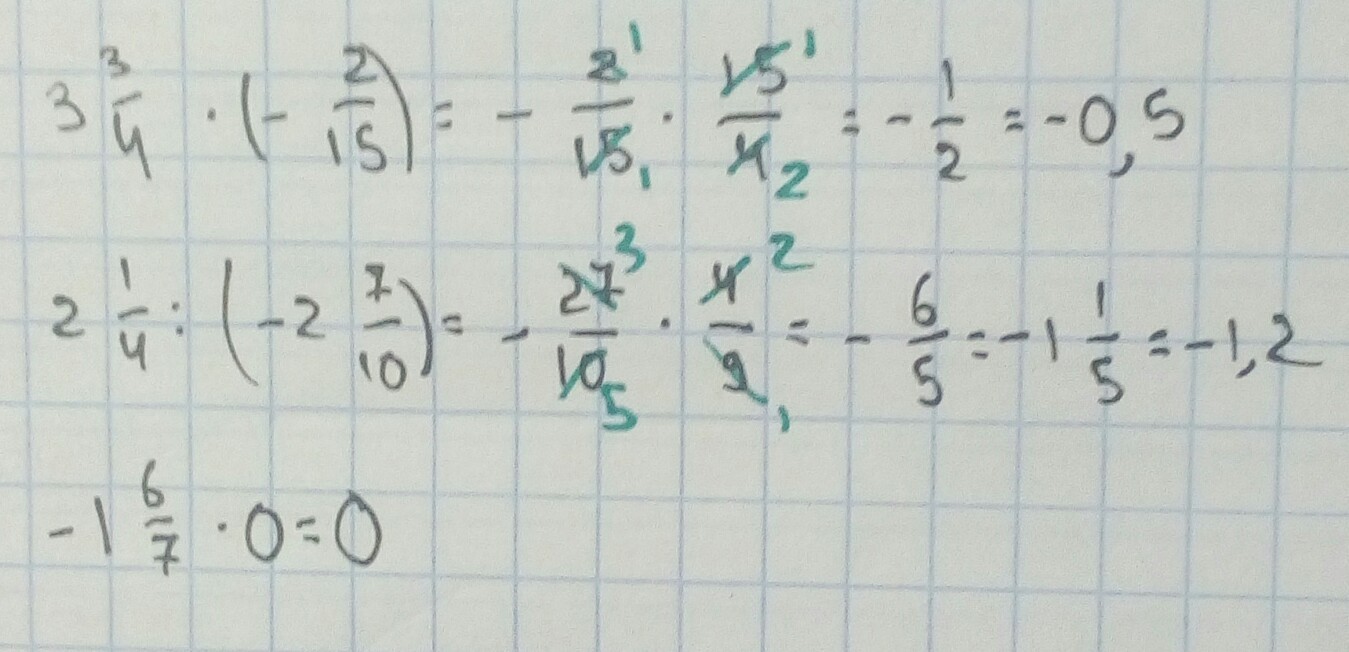 3 3/4 · (- 2/15) = - 2¹/15₁ · 15¹/4₂ = - 1/2 = -0,5
2 1/4 : (-2 7/10) = - 27³/10₅ · 4²/9₁ = - 6/5 = -1 1/5 = -1,2
-1 6/7 · 0 = 0